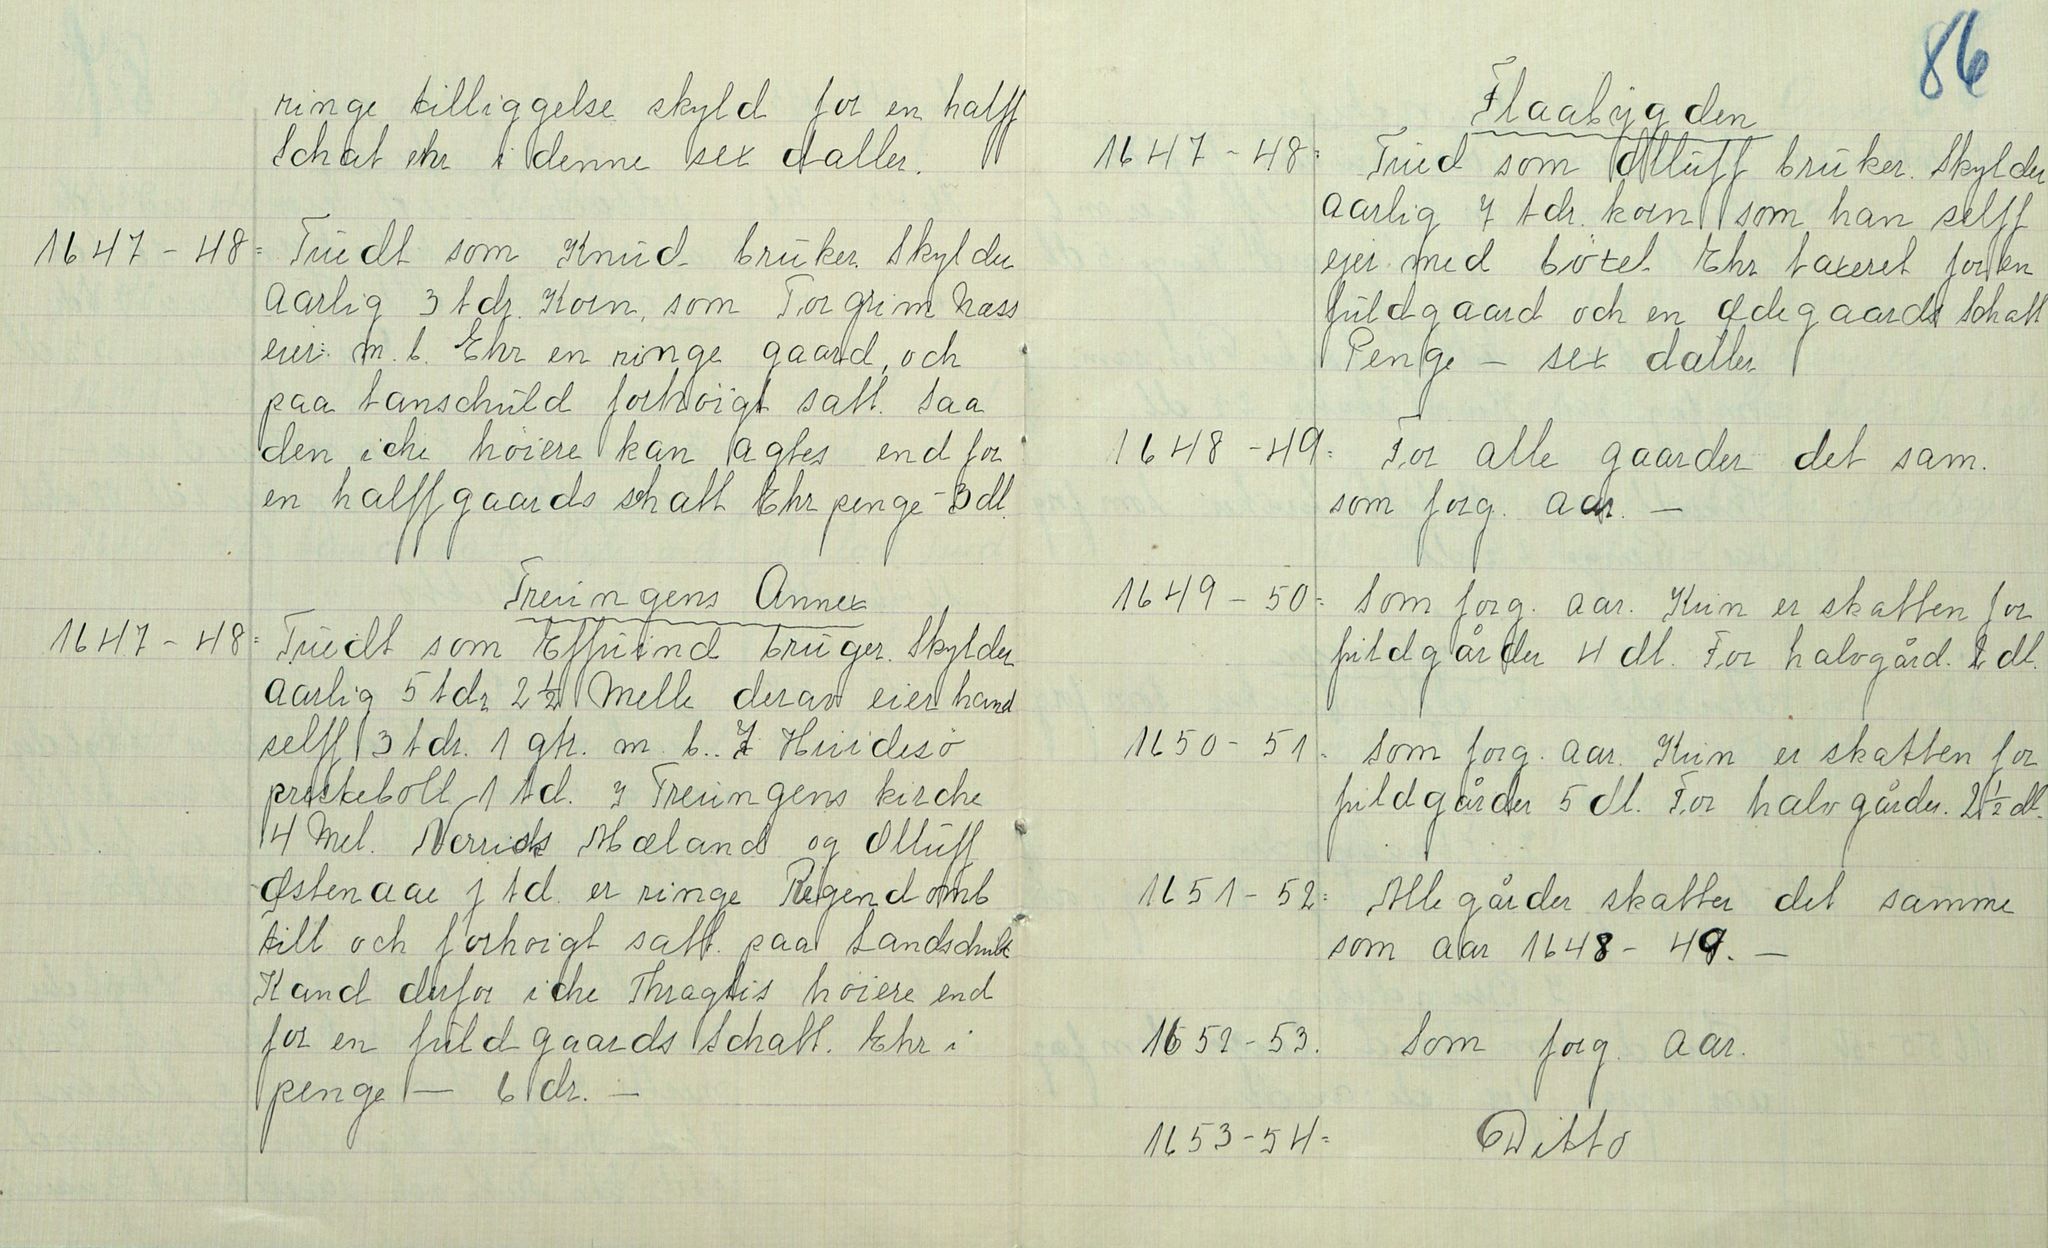 ringe tilliggelse skyld for en halff
schat ehr i denne sex daller.
1647-48= Tuedt som Knud brüker. Skylder
aarlig 3 tdr. Korn, som Torgrim Næss
eier m. b. Ehr en ringe gaard, och
paa Lanschüld forhöigt satt. saa
den iche höiere kan agtes end for
en halffgaards schatt Ehr penge - 3 dl.
Treungens Annex
1647-48= Tuedt som Effuind brüger. Skylder
aarlig 5 tdr 2 1/2 Melle derav eier hand
selff 3 tdr. 1 qtr. m. b. Huidesö
presteboll 1 td. y Treungens kirche
4 Mel. Norrids Mæland og Olluff
Østenaae j td. er ringe Eigendomb
till och forhoigt satt. paa Landschuld
Kand derfor iche Thragtis höiere end
for en fuldgaards Schatt. Ehr i
penge — 6 dr. —
86
Flaabygden
1647-48= Tued som Olluff brüker. Skylder
aarlig 7 tdr. korn som han selff
ejer med böxel. Ehr taxeret for en
füldgaard och en Ødegaards schatt
Penge — sex daller
1648-49= For alle gaarder det sam.
som forg. aar. —
1649-50= Som forg. aar. Kun er skatten for
fuldgårder 4 dl. For halvgård. 2 dl.
1650-51= Som forg. aar. Kun er skatten for
fuldgårder 5 dl. For halvgårder. 2 1/2 dl.
1651-52= Alle gårder skatter det samme
som aar 1648-49. —
1652-53. Som forg. aar.
1653-54= Ditto